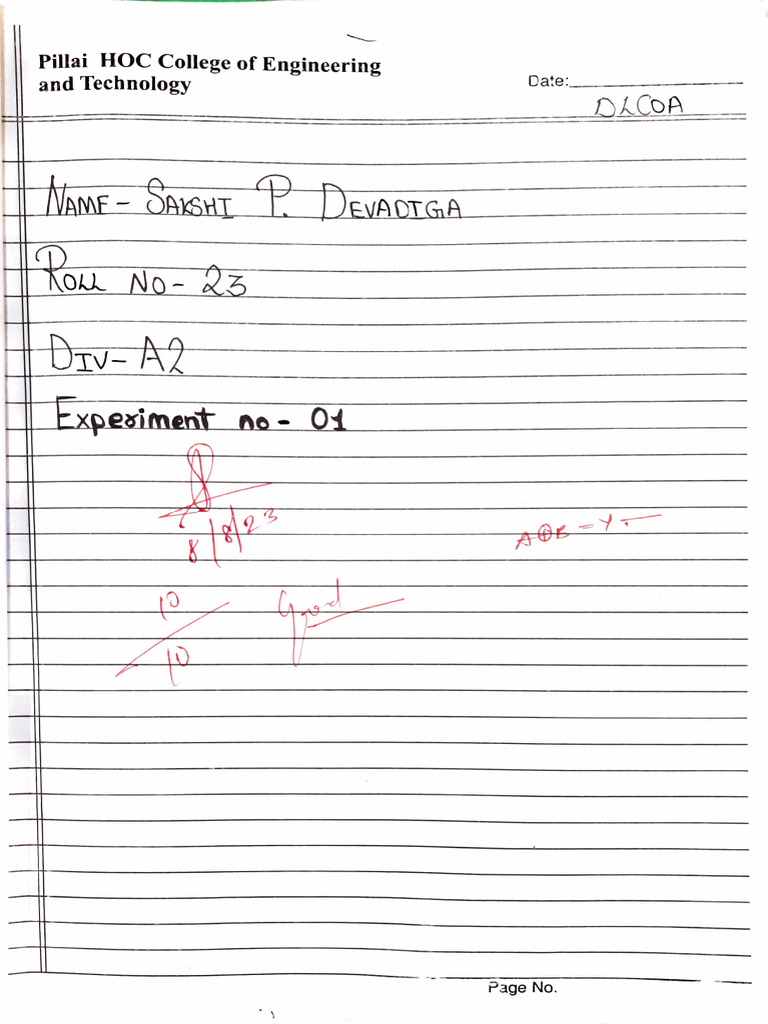 Pillai HOC College of Engineering
and Technology
Date:
DLCOA
NAME - SAKSHI P. DEVADIGA
ROLL NO - 23
DIV - A2
Experiment no - 01
8/8/23
A⊕B = Y
10
10
Good
Page No.